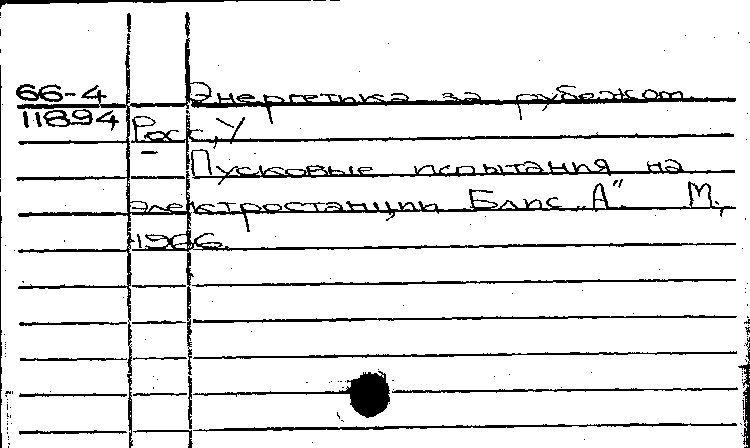 66-4 Энергетика за рубежом.
11894 Росс, У
Пусковые испытания на
электростанции Блис „А". М.,
1966.